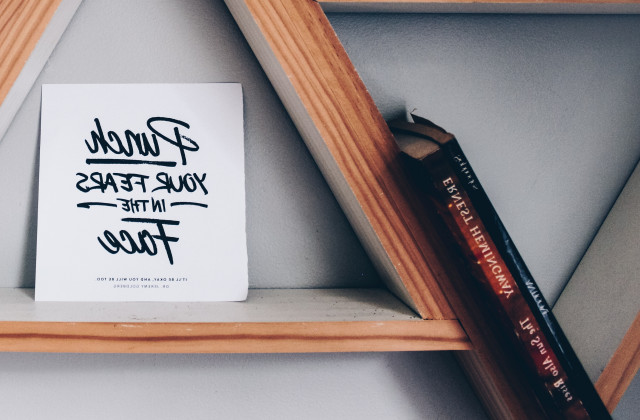 Punch
YOUR FEARS
IN THE
Face
IT'LL BE OKAY, AND YOU WILL BE TOO
ERNEST HEMINGWAY
The Sun Also Rises